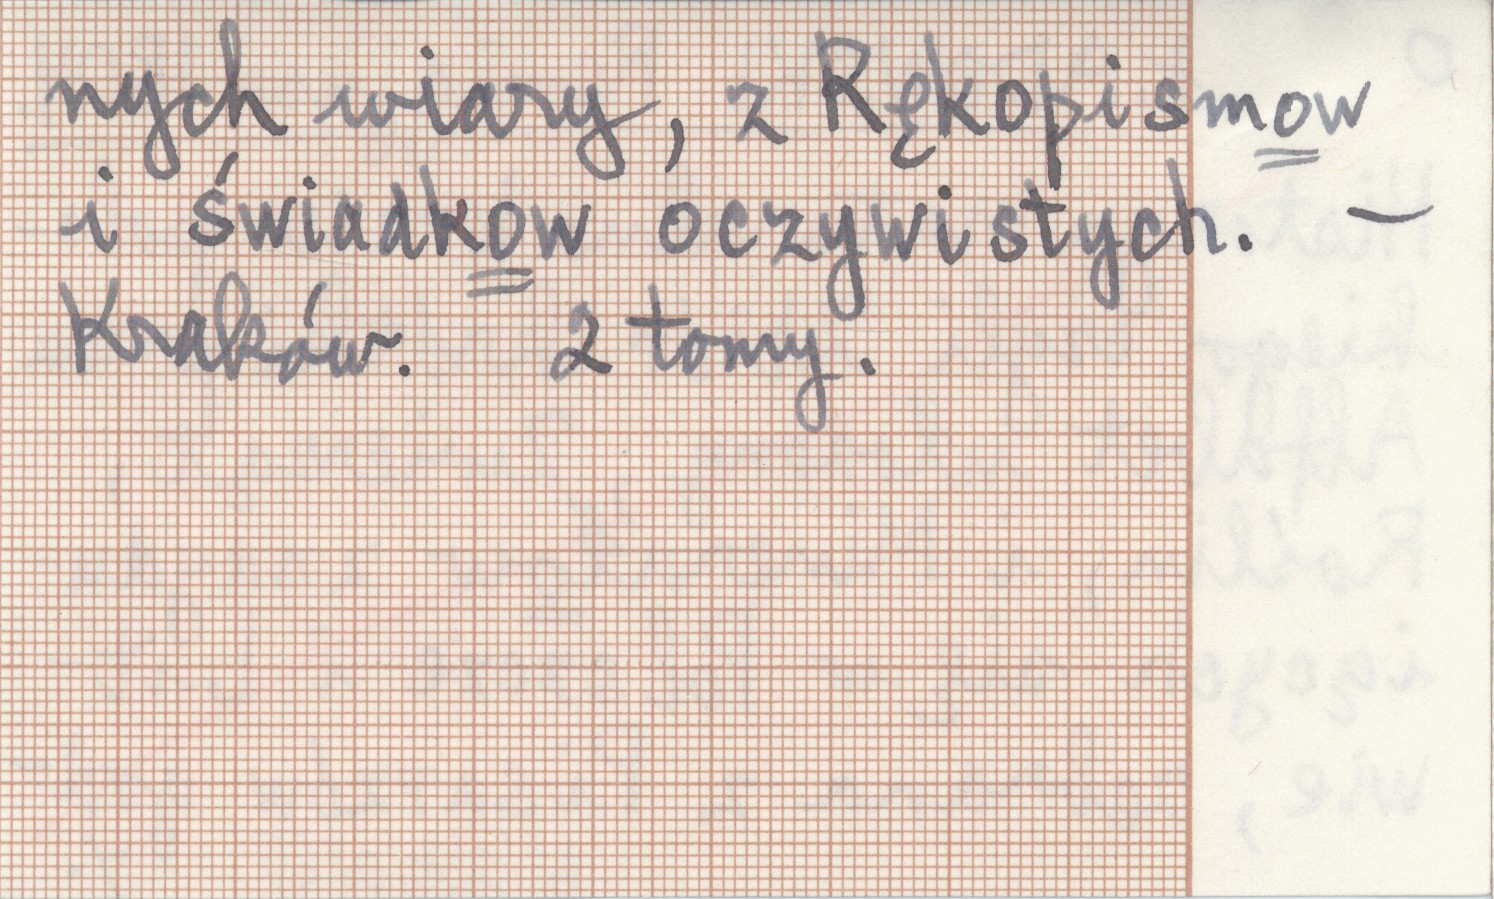 nych wiary, z Rękopismow
i świadkow oczywistych. —
Kraków. 2 tomy.